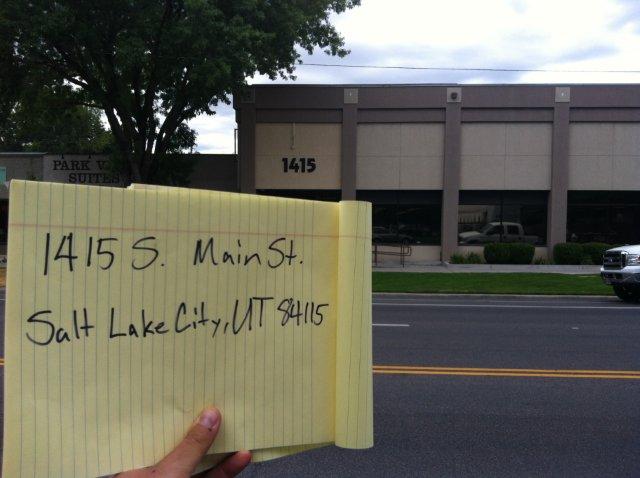 1415
PARK V
SUITES
1415 S. Main St.
Salt Lake City, UT 84115